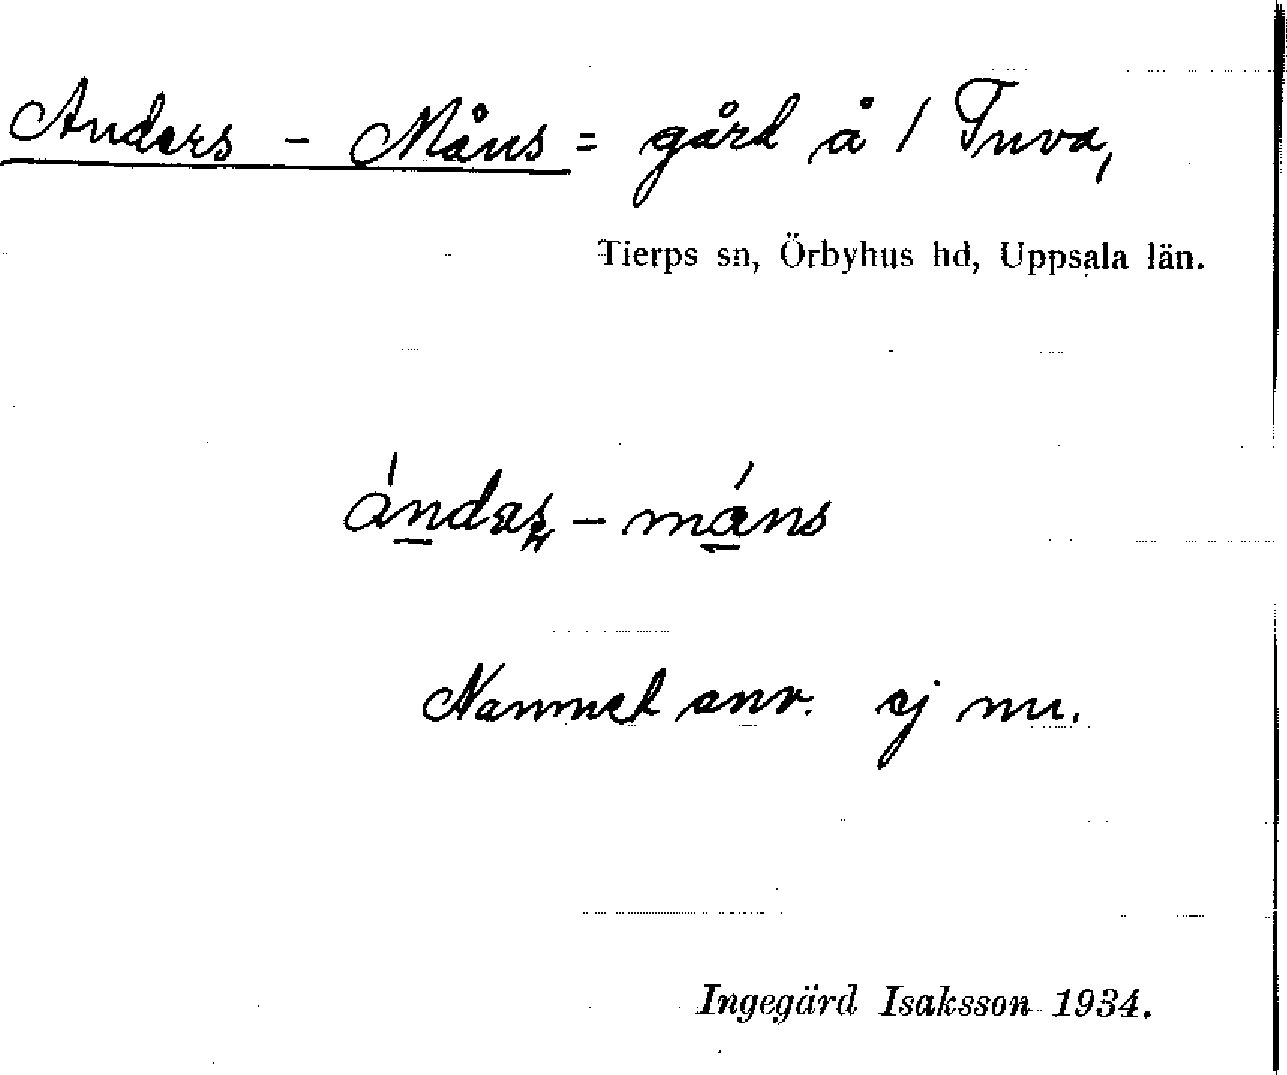 Anders - Måns = gård å 1 Tuva,
Tierps sn, Örbyhus hd, Uppsala län.
ándas - máns
Namnet anv. ej nu.
Ingegärd Isaksson 1934.